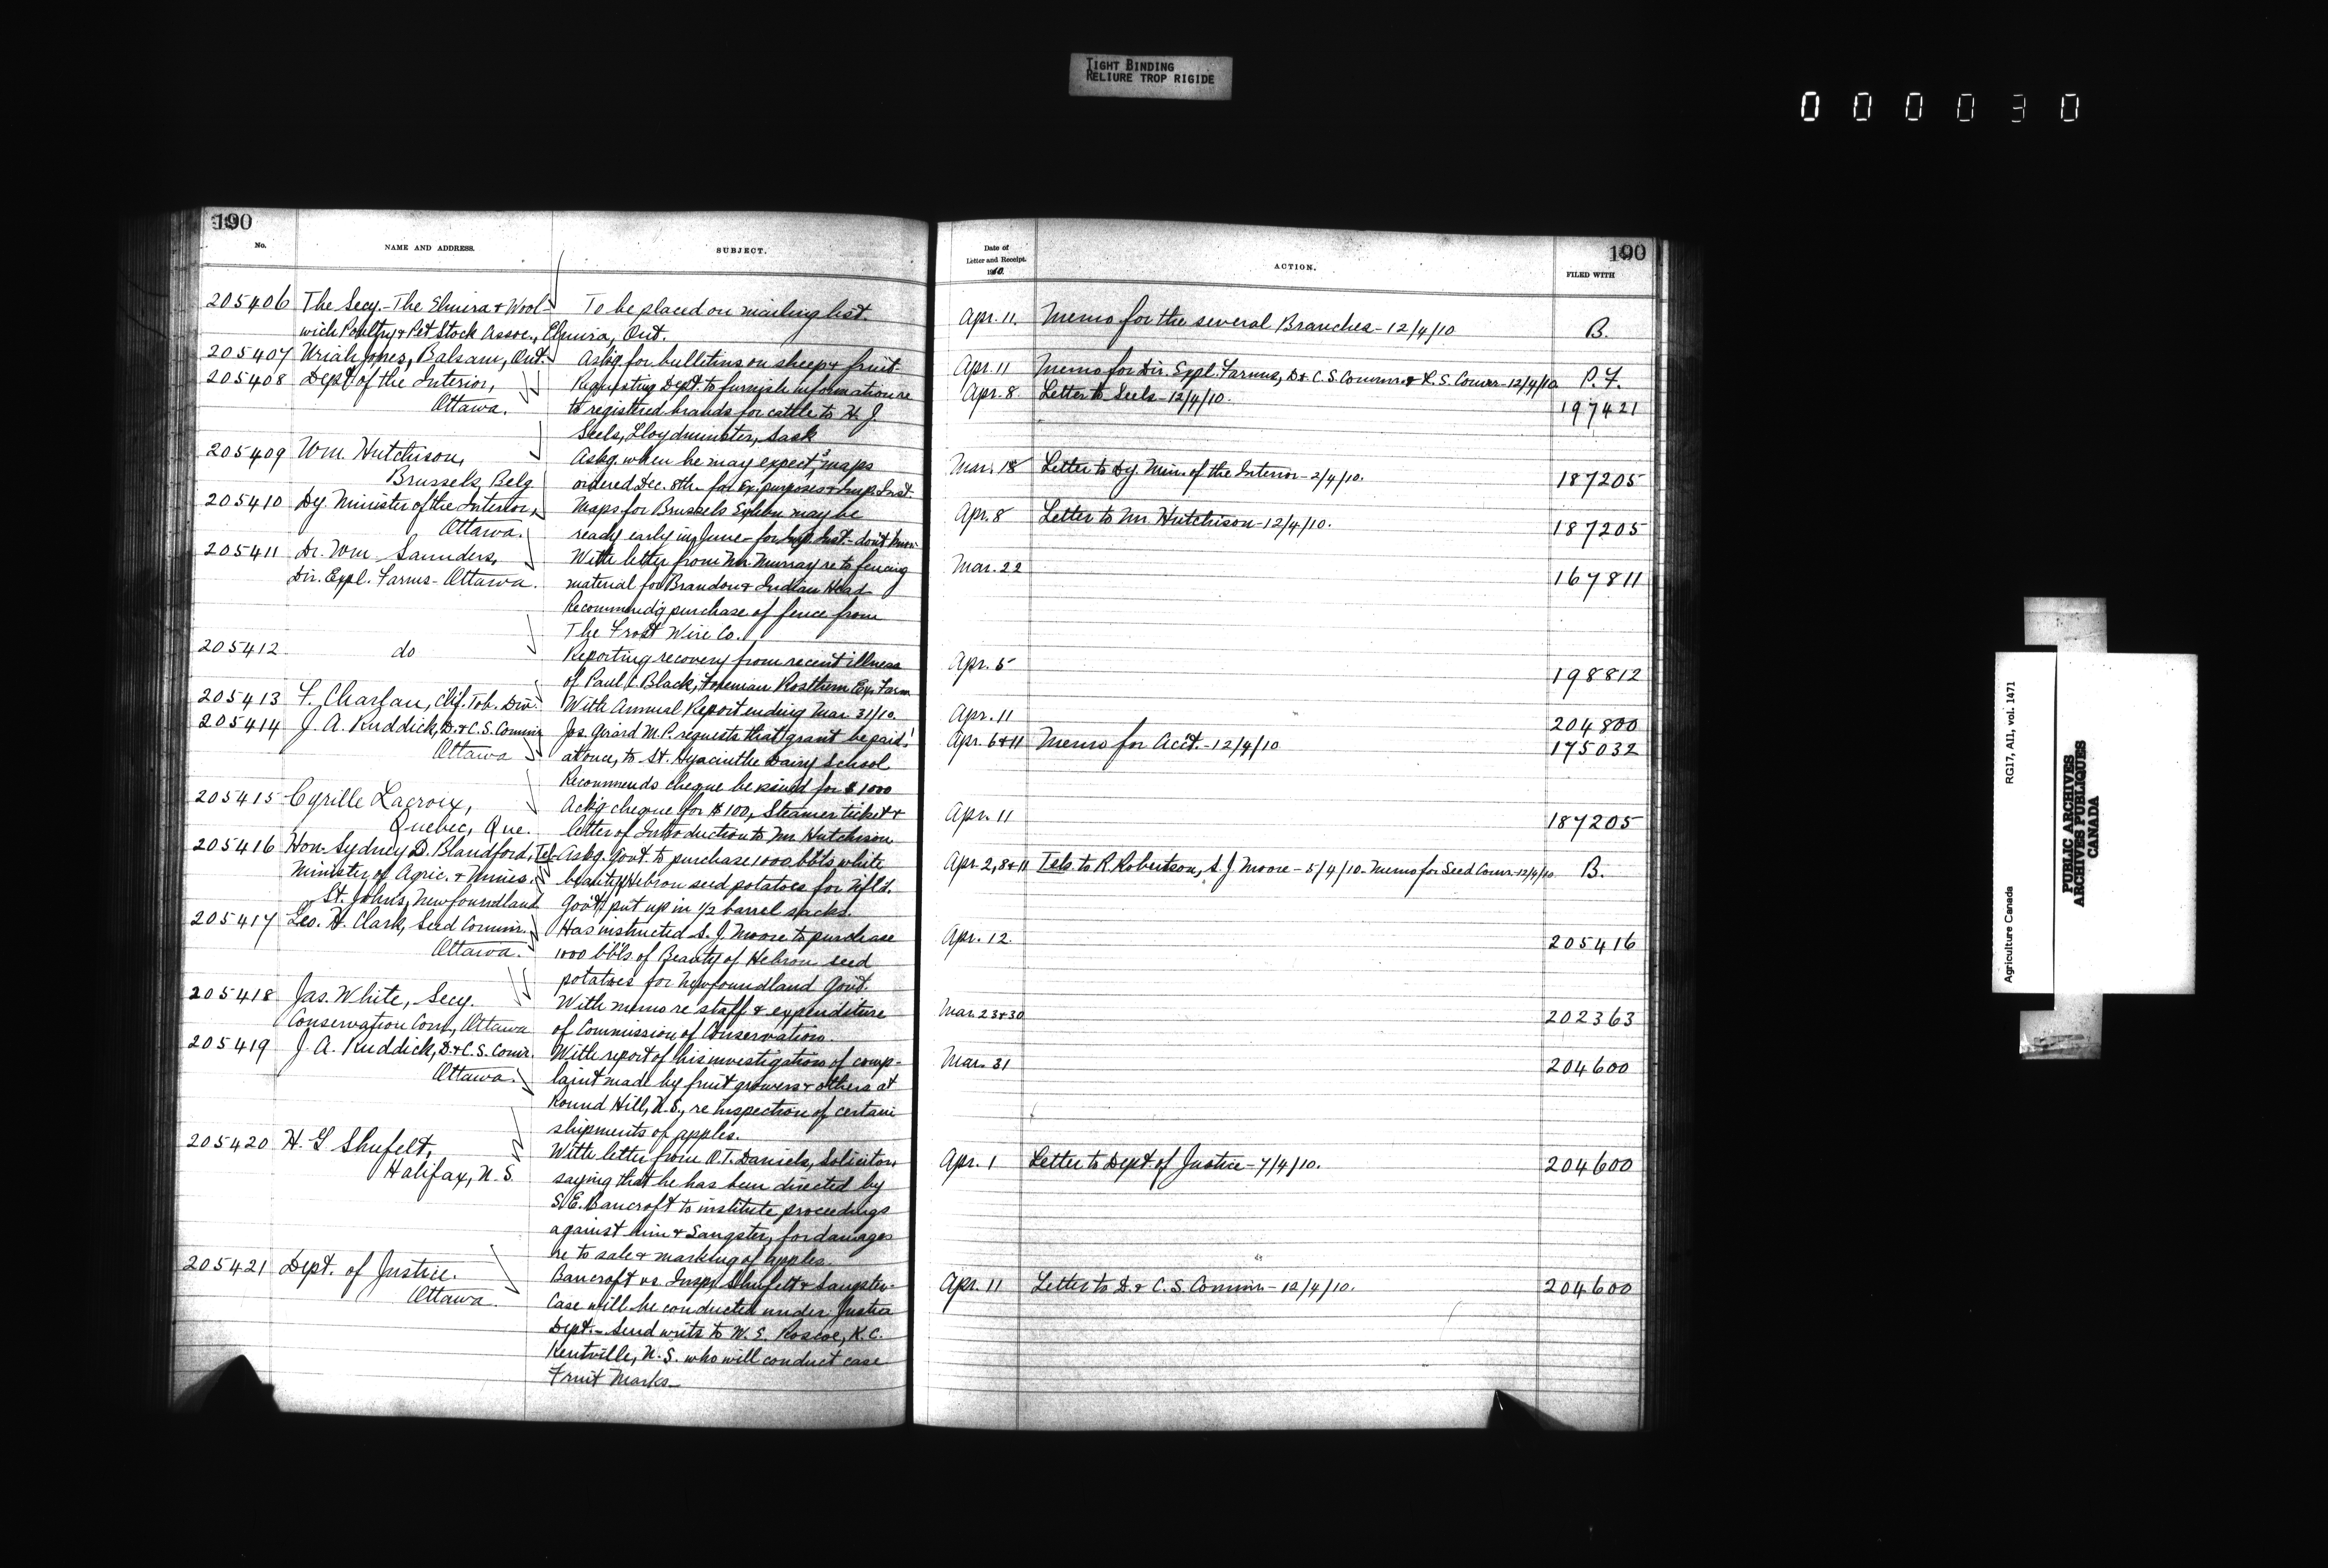 TIGHT BINDING
RELIURE TROP RIGIDE
000030
190
No. NAME AND ADDRESS. SUBJECT.
205406 The Secy.- The Elmira & Wool- To be placed on mailing list.
wich Poultry & Pet Stock Assoc., Elmira, Ont.
205407 Uriah Jones, Balsam, Ont. Askg for bulletins on sheep & fruit.
205408 Dept of the Interior, Requesting Dept to furnish information re
Ottawa. to registered brands for cattle to H. J.
Seels, Lloydminster, Sask
205409 Wm. Hutchison, Askg. when he may expect maps
Brussels, Belg ordered Dec. 8th - for Ex. purposes & Imp. Inst.
205410 Dy. Minister of the Interior, Maps for Brussels Exhbn may be
Ottawa. ready early in June - for Imp. Inst. - don't know
205411 Dr. Wm Saunders, With letter from Mr. Murray re to fencing
Dir. Expl. Farms - Ottawa. material for Brandon & Indian Head
Recommendg purchase of fence from
The Frost Wire Co.
205412 do Reporting recovery from recent illness
of Paul C. Black, Foreman Rosthern Exp. Farm
205413 F. Charlan, Chf. Tob. Div. With Annual Report ending Mar. 31/10.
205414 J. A. Ruddick, D. & C. S. Commr Jos. Girard M.P. requests that grant be paid,
Ottawa at once, to St. Hyacinthe Dairy School
Recommends cheque be issued for $1000
205415 Cyrille Lacroix, Ackg cheque for $100, Steamer ticket &
Quebec, Que. letter of Introduction to Mr. Hutchison
205416 Hon. Sydney D. Blandford, Tel- Askg. Govt. to purchase 1000 bbls white
Minister of Agric. & Mines. beauty Hebron seed potatoes for Nfld.
St. Johns, Newfoundland Govt. put up in 1/2 barrel sacks.
205417 Geo. H. Clark, Seed Commr. Has instructed S. J. Moore to purchase
Ottawa. 1000 bbls of Beauty of Hebron seed
potatoes for Newfoundland Govt.
205418 Jas. White, Secy. With memo re staff & expenditure
Conservation Com., Ottawa of Commission of Conservation.
205419 J. A. Ruddick, D. & C. S. Comr. With report of his investigation of comp-
Ottawa. laint made by fruit growers & others at
Round Hill, N.S., re inspection of certain
shipments of apples.
205420 H. G Shufelt, With letter from O. T. Daniels, Solicitor,
Halifax, N. S. saying that he has been directed by
S. E. Bancroft to institute proceedings
against him & Sangster, for damages
re to sale & marking of apples.
205421 Dept. of Justice. Bancroft vs Insprs Shufelt & Sangster-
Ottawa. Case will be conducted under Justice
Dept. - Send writs to W. E. Roscoe, K.C.
Kentville, N.S. who will conduct case
Fruit Marks-
190
Date of
Letter and Receipt.
1910. ACTION. FILED WITH
Apr. 11. Memo for the several Branches - 12/4/10 B.
Apr. 11 Memo for Dir. Expl. Farms, D & C. S. Commr. & L. S. Comr - 12/4/10 P. F.
Apr. 8 Letter to Seels - 12/4/10. 197421
Mar. 18 Letter to Dy. Min. of the Interior - 2/4/10. 187205
Apr. 8 Letter to Mr. Hutchison - 12/4/10. 187205
Mar. 22 167811
Apr. 5 198812
Apr. 11 204800
Apr. 6 & 11 Memo for Acct. - 12/4/10 175032
Apr. 11 187205
Apr. 2, 8 & 11 Tels. to R. Robertson, S. J. Moore - 5/4/10 - Memo for Seed Comr. - 12/4/10. B.
Apr. 12. 205416
Mar. 23 & 30 202363
Mar. 31 204600
Apr. 1 Letter to Dept. of Justice - 7/4/10. 204600
Apr. 11 Letter to D. & C. S. Commr - 12/4/10. 204600
Agriculture Canada RG17, AII, vol. 1471
PUBLIC ARCHIVES
ARCHIVES PUBLIQUES
CANADA